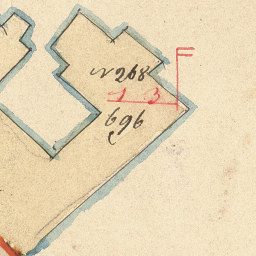 F
N 268
1 3
696